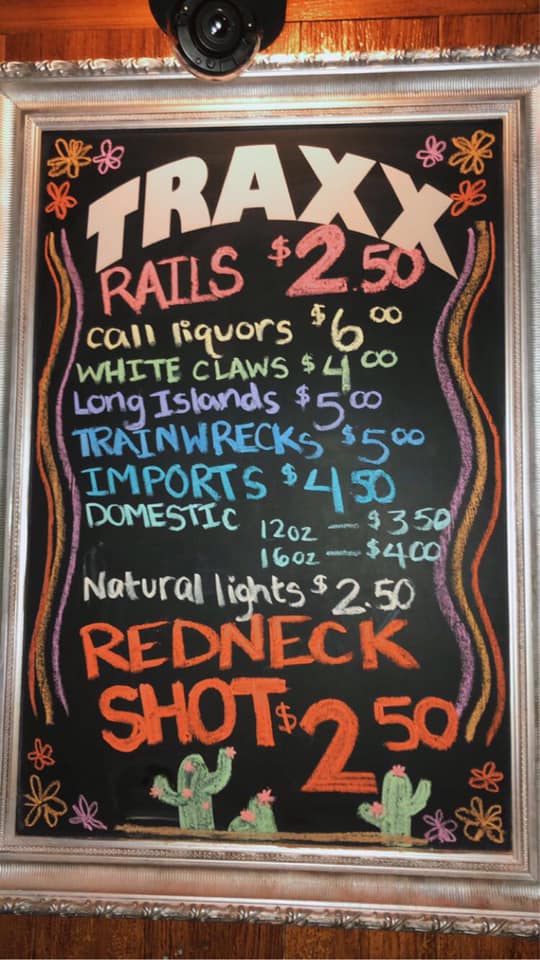 TRAXX
RAILS $2.50
call liquors $6.00
WHITE CLAWS $4.00
Long Islands $5.00
TRAINWRECKS $5.00
IMPORTS $4.50
DOMESTIC 12oz — $3.50
16oz — $4.00
Natural lights $2.50
REDNECK
SHOT $2.50